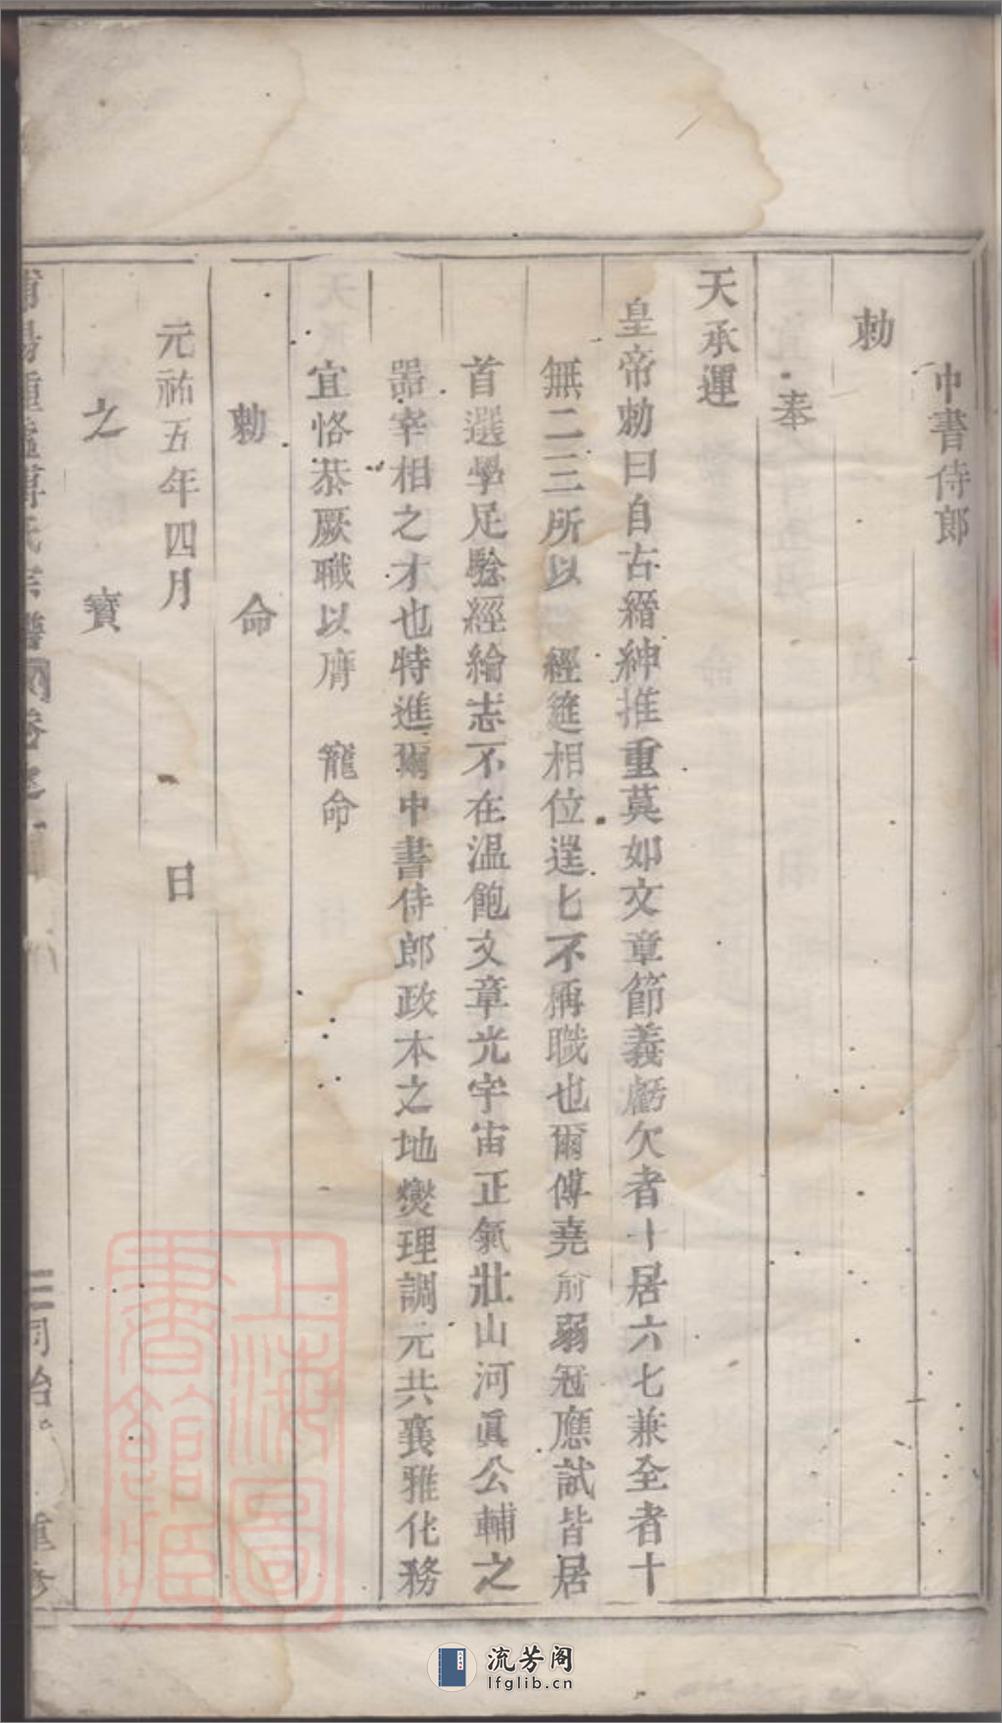 中書侍郎
勅
奉
天承運
皇帝勅曰自古縉紳推重莫如文章節義虧欠者十居六七兼全者十
無二三所以 經筵相位逞匕不稱職也爾傅堯俞弱冠應試皆居
首選學足騐經綸志不在溫飽文章光宇宙正氣壯山河眞公輔之
噐宰相之才也特進爾中書侍郎政本之地爕理調元共襄雅化務
宜恪恭厥職以膺 寵命
勅 命
元祐五年四月 日
之 寳
氏宗譜 卷之一
三 同治 重修
上海圖書館藏
流芳阁
lfglib.cn